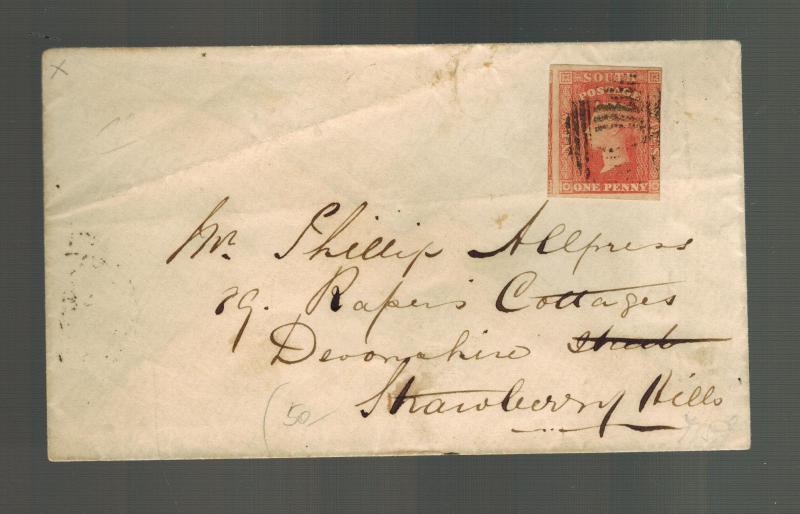 x
SOUTH
POSTAGE
WALES
ONE PENNY
Mr. Phillip Allpress
29. Rapers Cottages
Devonshire Street
Strawberry Hills
50